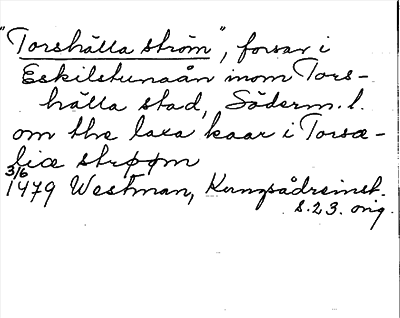 "Torshälla ström", forsar i
Eskilstunaån inom Tors-
hälla stad, Söderm. l.
om the laxa kaar i Torsæ-
liæ strøøm
3/6
1479 Westman, Kungsådreinst.
s. 23. orig.